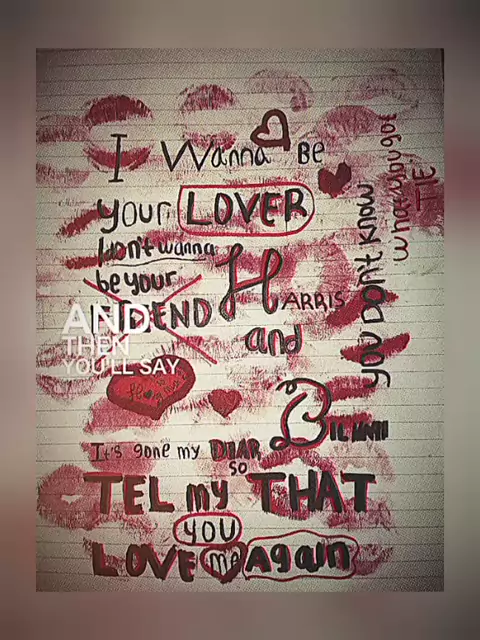 I Wanna BE
your LOVER
I don't wanna
be your
HARRIS
and
AND
THEN
YOU'LL SAY
It's gone my DEAR
so
TEL my THAT
YOU
LOVE me Again
YOU DON'T KNOW
what you got
TIE